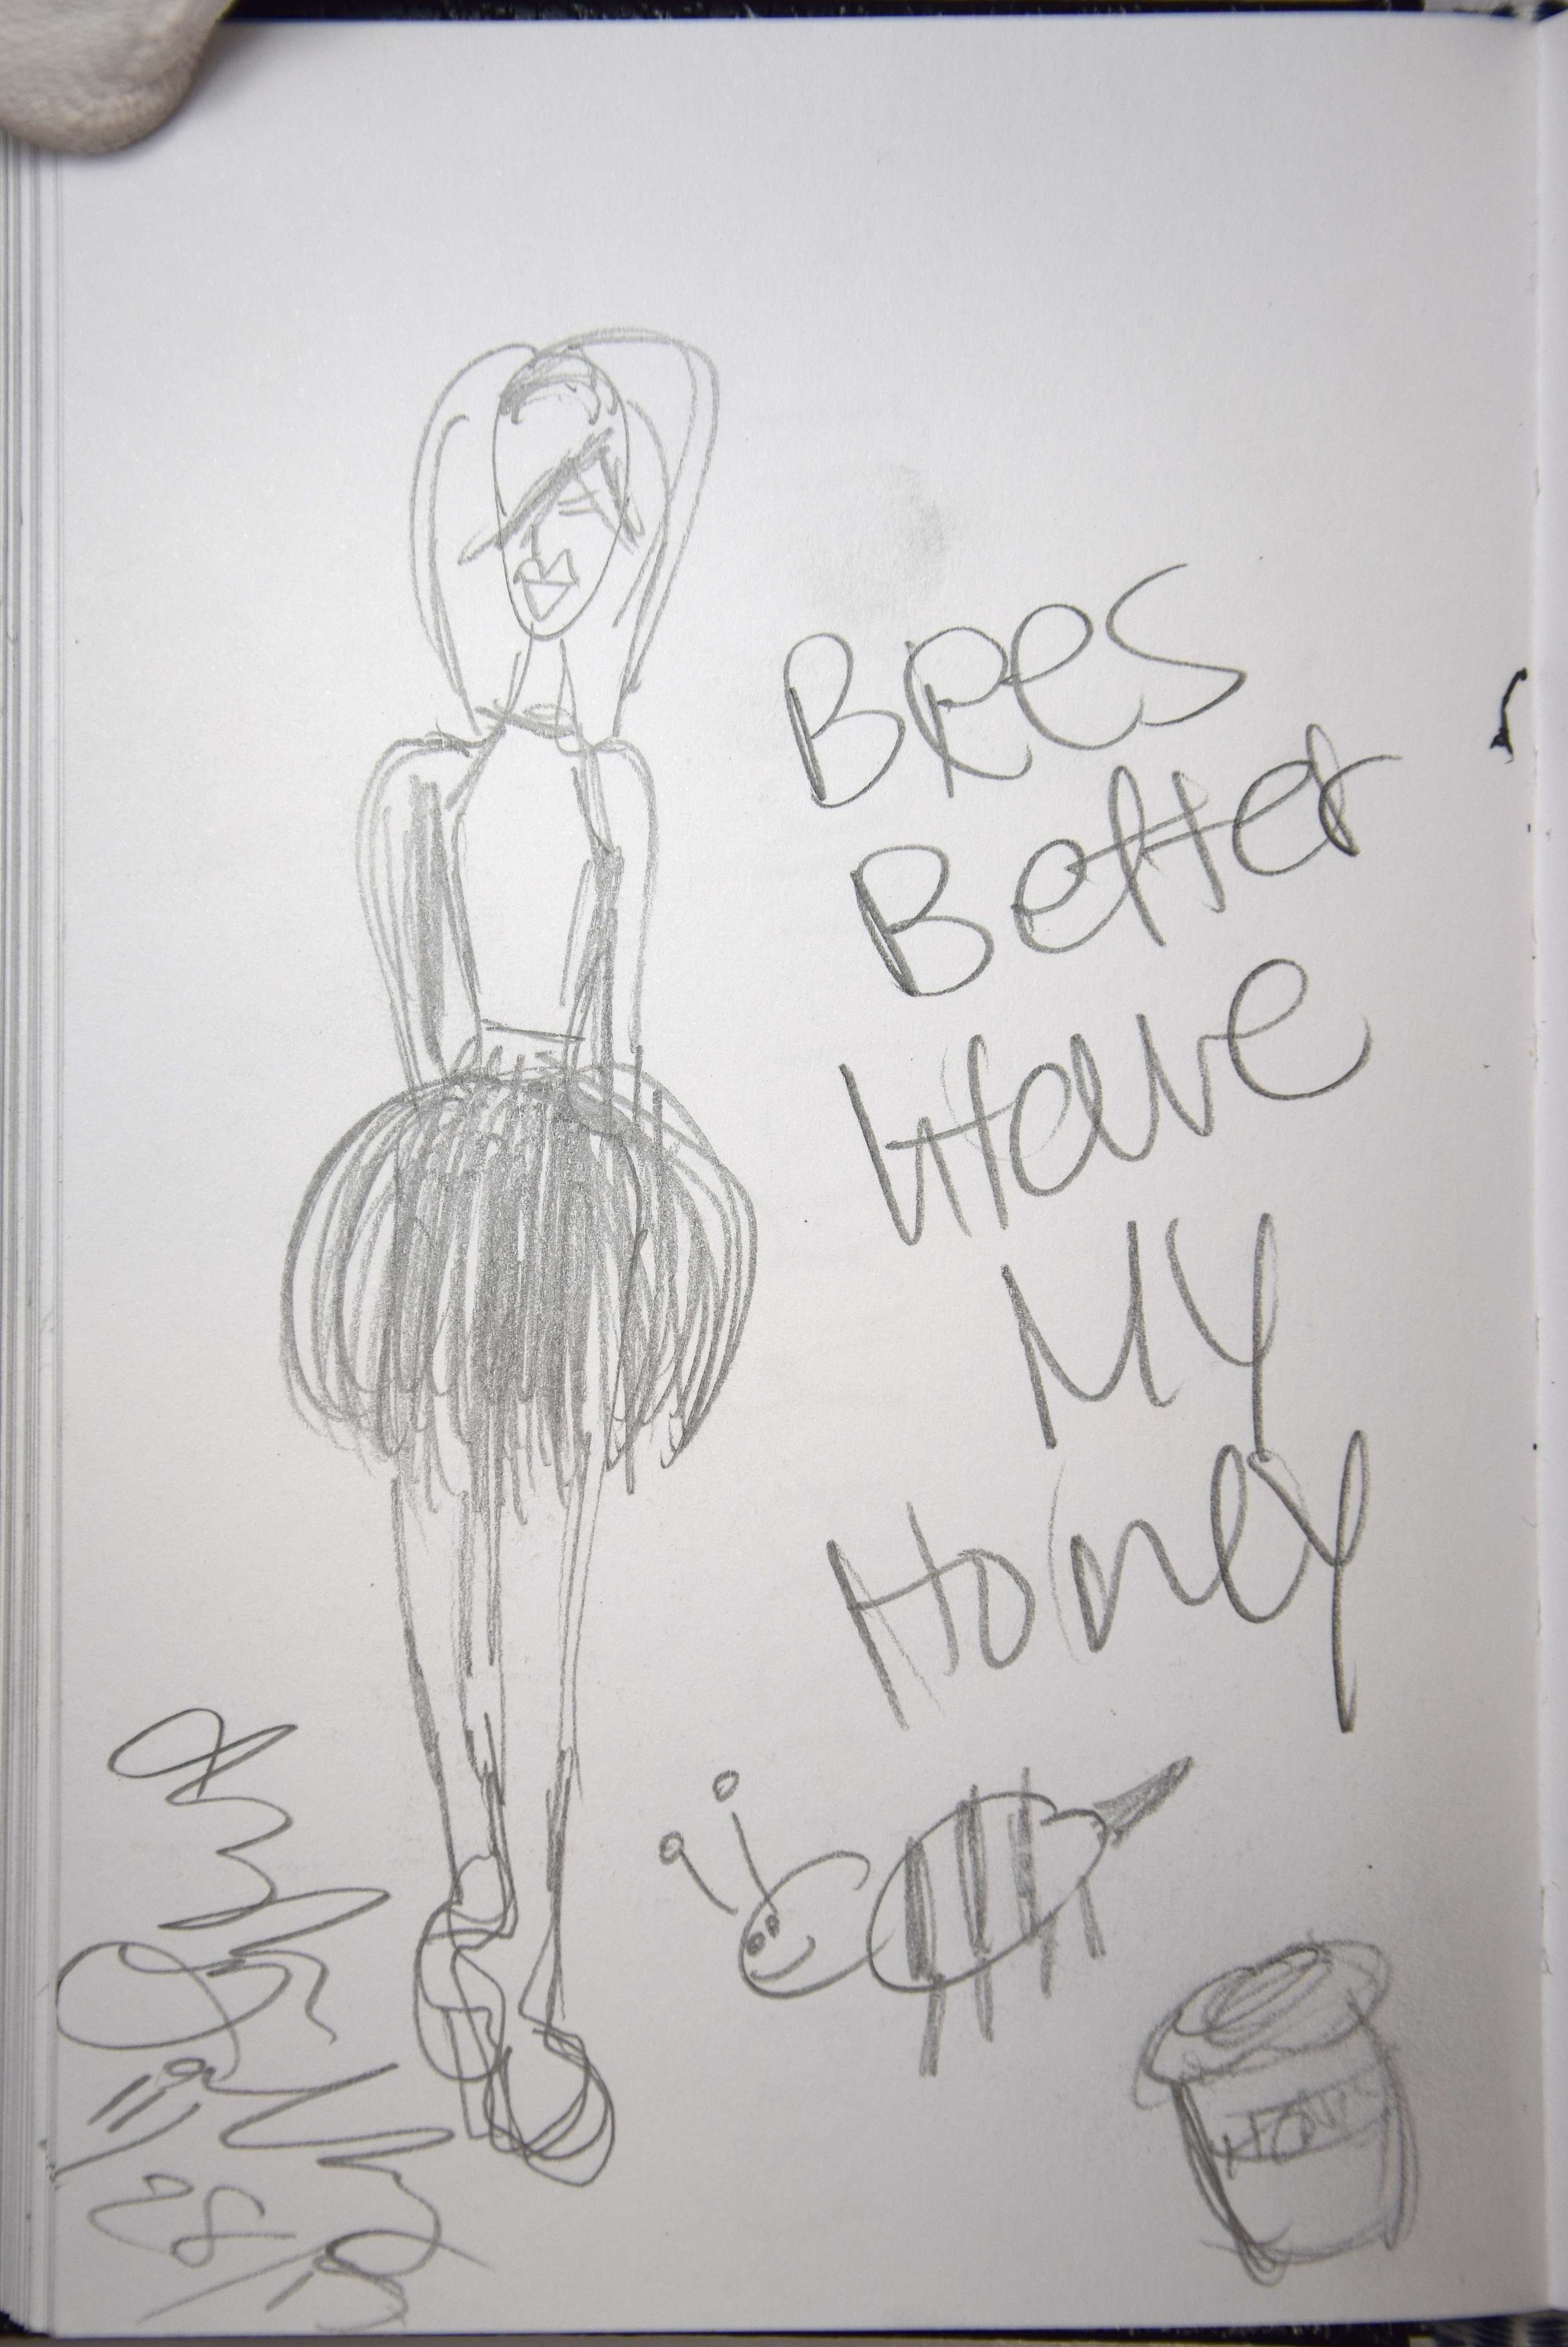 Bees
Better
Have
My
Honey
11/
28/15